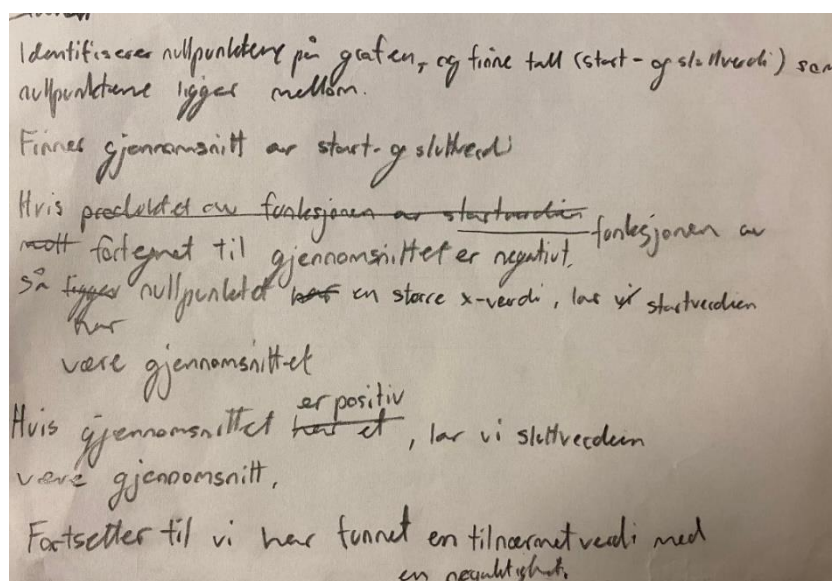 Identifiserer nullpunktene på grafen, og finne tall (start- og sluttverdi) som
nullpunktene ligger mellom.
Finner gjennomsnitt av start- og sluttverdi
Hvis produktet av funksjonen av startverdien funksjonen av
mott fortegnet til gjennomsnittet er negativt,
så ligger nullpunktet har en større x-verdi, lar vi startverdien
har
være gjennomsnittet
er positiv
Hvis gjennomsnittet har et, lar vi sluttverdein
være gjennomsnitt,
Fortsetter til vi har funnet en tilnærmet verdi med
en nøyaktighet.